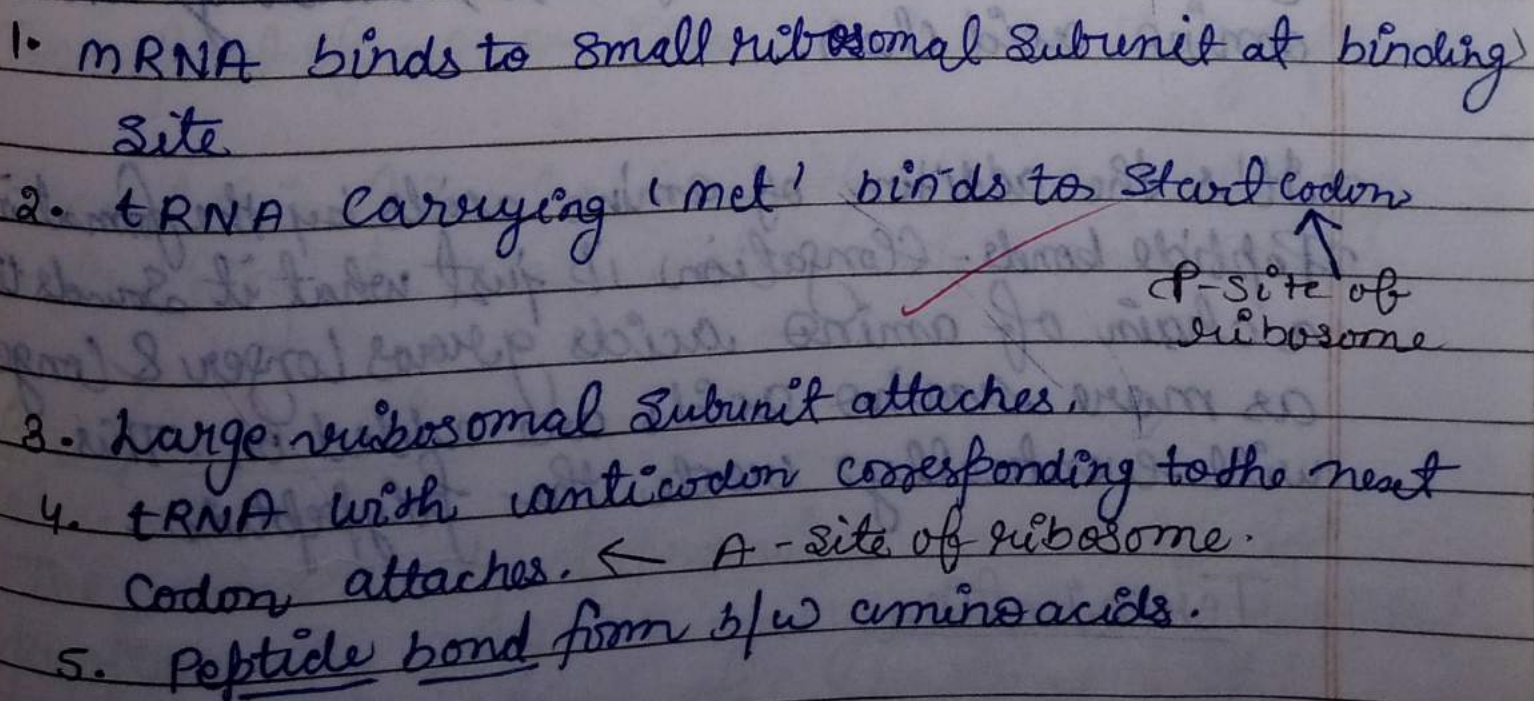 1. mRNA binds to small ribosomal subunit at binding
site
2. tRNA carrying 'met' binds to start codon
P-site of
ribosome
3. Large ribosomal subunit attaches.
4. tRNA with anticodon corresponding to the next
codon attaches. ← A-site of ribosome.
5. Peptide bond form b/w amino acids.